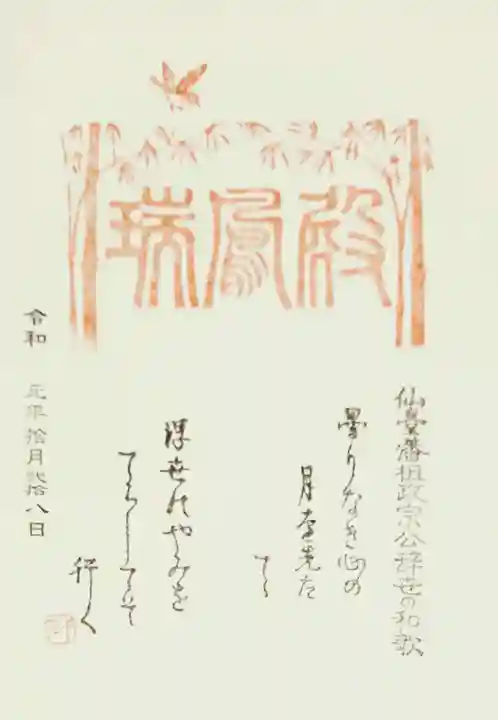 瑞鳳殿
仙臺藩祖政宗公辞世の和歌
曇りなき心の
月を先たて
浮世のやみを
てらしてそ
行く
令和 元年拾月弐拾八日